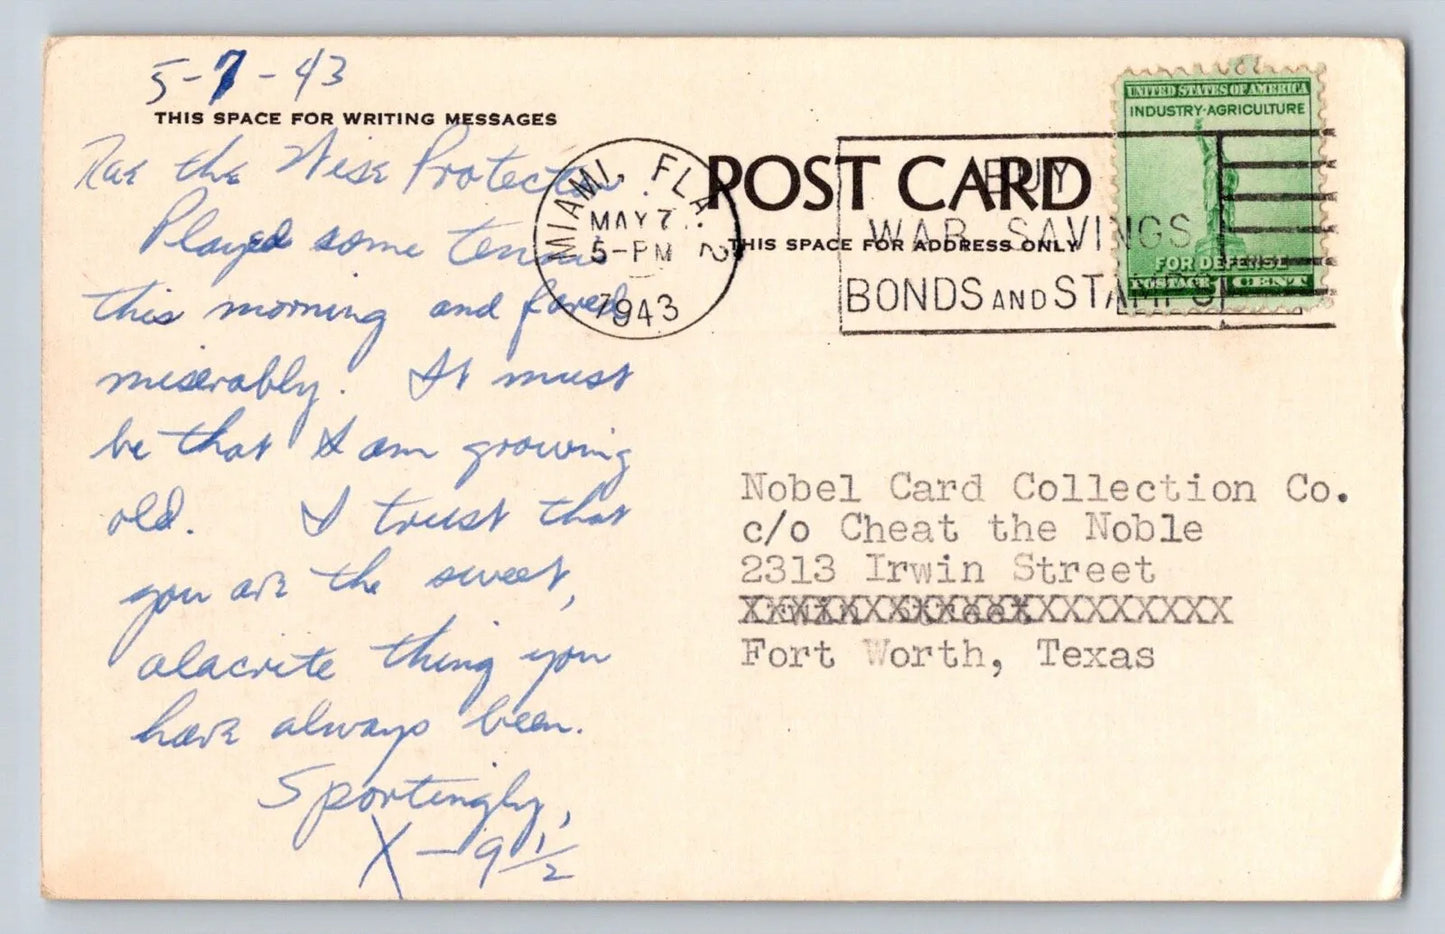 5-7-43
THIS SPACE FOR WRITING MESSAGES
Rae the Wise Protector.
Played some tennis
this morning and fared
miserably. It must
be that I am growing
old. I trust that
you are the sweet,
alacrite thing you
have always been.
Sportingly,
X-9 1/2
MIAMI, FLA. 2
MAY 7
5-PM
1943
POST CARD
THIS SPACE FOR ADDRESS ONLY
BUY
WAR SAVINGS
BONDS AND STAMPS
UNITED STATES OF AMERICA
INDUSTRY-AGRICULTURE
FOR DEFENSE
POSTAGE 1 CENT
Nobel Card Collection Co.
c/o Cheat the Noble
2313 Irwin Street
Fort Worth, Texas